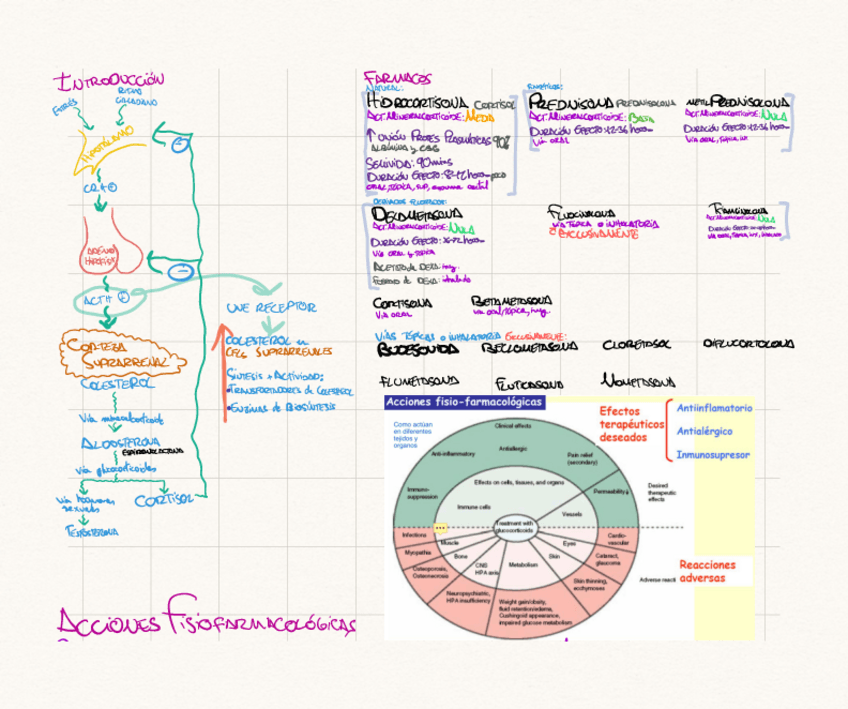 INTRODUCCIÓN
ESTRÉS
RITMO CIRCADIANO
HIPOTÁLAMO
CRH
ADENO HIPÓFISIS
ACTH
CORTEZA SUPRARRENAL
COLESTEROL
Vía mineralocorticoide
ALDOSTERONA
ESPIRONOLACTONA
Vía glucocorticoides
Vía hormonas sexuales
CORTISOL
TESTOSTERONA
UNE RECEPTOR
COLESTEROL en
CELS SUPRARRENALES
SÍNTESIS + ACTIVIDAD:
• TRANSPORTADORES DE COLESTEROL
• ENZIMAS DE BIOSÍNTESIS
FÁRMACOS
NATURAL:
HIDROCORTISONA CORTISOL
ACT. MINERALCORTICOIDE: MEDIA
↑ UNIÓN PROTES PLASMÁTICAS 90%
ALBÚMINA y CBG
SEMIVIDA: 90 mins
DURACIÓN EFECTO: 8-12 horas
ORAL, TÓPICA, SUP,
PREDNISONA PREDNISOLONA
ACT. MINERALCORTICOIDE: BAJA
DURACIÓN EFECTO: 12-36 horas
VÍA ORAL
METILPREDNISOLONA
ACT. MINERALCORTICOIDE: NULA
DURACIÓN EFECTO: 12-36 horas
DEXAMETASONA
ACT. MINERALCORTICOIDE: NULA
DURACIÓN EFECTO: 36-72 horas
VÍA ORAL y TÓPICA
ACETATO DE DEXA: iny.
FOSFATO DE DEXA: inhalado
FLUOCINOLONA
VÍA TÓPICA o INHALATORIA
EXCLUSIVAMENTE
TRIAMCINOLONA
ACT. MINERALCORTICOIDE: NULA
CORTISONA
VÍA ORAL
BETAMETASONA
VÍA ORAL, TÓPICA, iny.
VÍAS TÓPICAS o INHALATORIA EXCLUSIVAMENTE:
BUDESONIDA BECLOMETASONA CLOBETASOL DIFLUCORTOLONA
FLUMETASONA FLUTICASONA MOMETASONA
Acciones fisio-farmacológicas
Como actúan
en diferentes
tejidos y
organos
Efectos
terapéuticos
deseados
Antiinflamatorio
Antialérgico
Inmunosupresor
Clinical effects
Anti-inflammatory
Antiallergic
Pain relief
(secondary)
Immuno-
suppression
Effects on cells, tissues, and organs
Permeability↓
Immune cells
Vessels
Desired
therapeutic
effects
Treatment with
glucocorticoids
Infections
Myopathia
Osteoporosis,
Osteonecrosis
Muscle
Bone
CNS
HPA axis
Metabolism
Skin
Eyes
Cardio-
vascular
Cataract,
glaucoma
Skin thinning,
ecchymoses
Neuropsychiatric,
HPA insufficiency
Weight gain/obesity,
fluid retention/edema,
Cushingoid appearance,
impaired glucose metabolism
Adverse reacti
Reacciones
adversas
ACCIONES FISIOFARMACOLÓGICAS